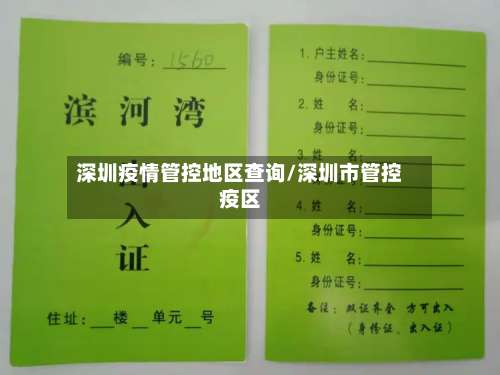 编号: 1560
滨河湾
入
证
住址: __楼__单元__号
1.户主姓名:
身份证号:
2.姓 名:
身份证号:
3.姓 名:
4.姓 名:
身份证号:
5.姓 名:
身份证号:
备注: 双证齐全 方可出入
(身份证、出入证)
深圳疫情管控地区查询/深圳市管控
疫区